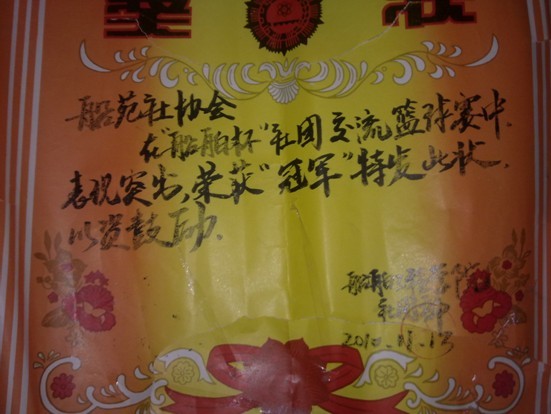 奖状
船苑社协会
在“船舶杯”社团交流篮球赛中,
表现突出,荣获“冠军”特发此状,
以资鼓励.
船舶工程学院
2010.11.13